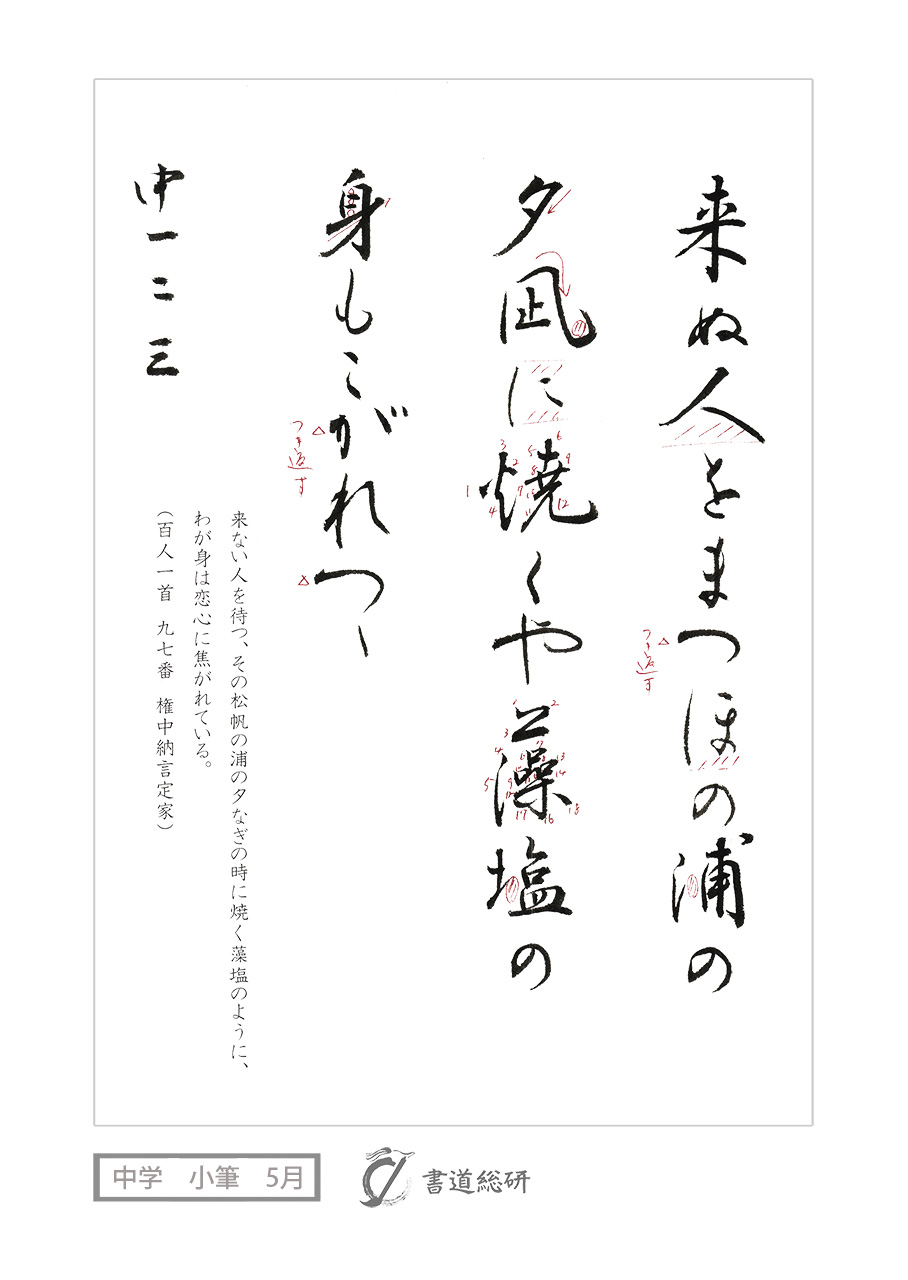 来ぬ人をまつほの浦の
つき返す
夕凪に焼くや藻塩の
身もこがれつゝ
つき返す
中一二三
来ない人を待つ、その松帆の浦の夕なぎの時に焼く藻塩のように、
わが身は恋心に焦がれている。
（百人一首　九七番　権中納言定家）
中学　小筆　5月
書道総研